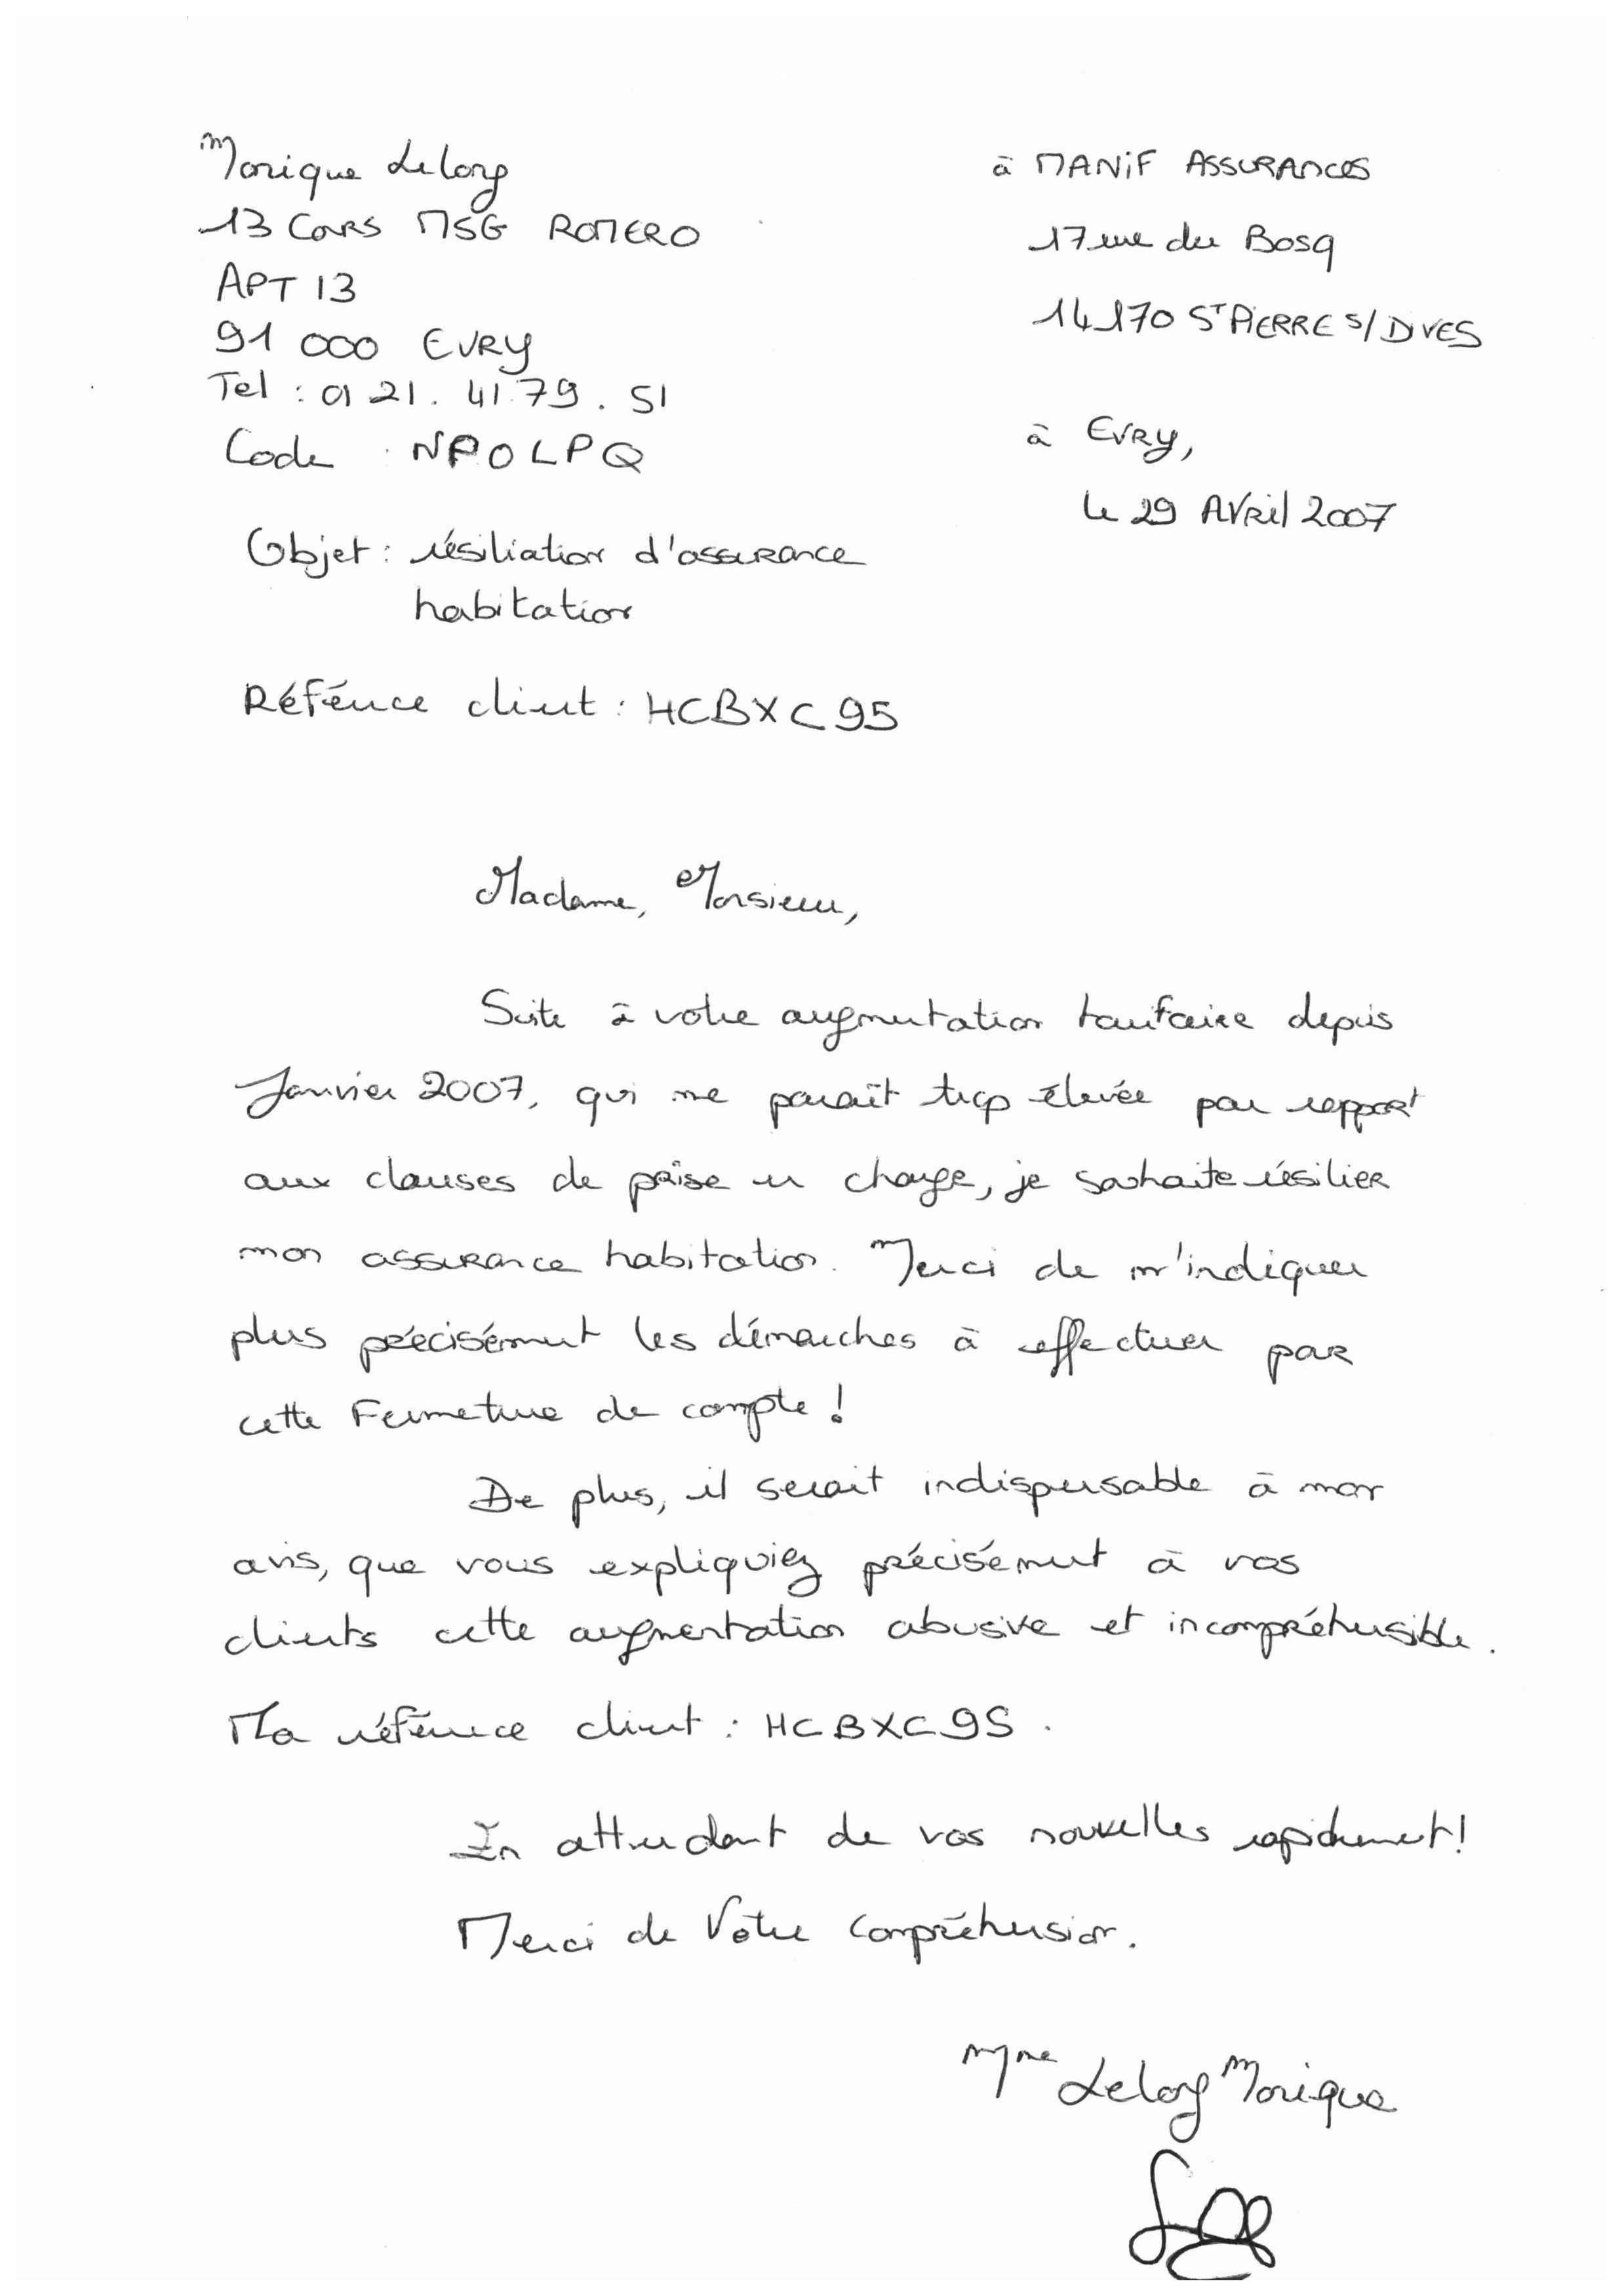 Monique Lelong
13 Cours MSG ROMERO
APT 13
91 000 EVRY
Tel : 01 21. 41. 79. 51
Code NPOLPQ
à MANIF ASSURANCES
17 rue du Bosq
14170 ST PIERRE S/ DIVES
à EVRY,
le 29 AVRil 2007
Objet : résiliation d'assurance
habitation
Référence client : HCBXC95
Madame, Monsieur,
Suite à votre augmentation tarifaire depuis
Janvier 2007, qui me paraît trop élevée par rapport
aux clauses de prise en charge, je souhaite résilier
mon assurance habitation. Merci de m'indiquer
plus précisément les démarches à effectuer par
cette Fermeture de compte !
De plus, il serait indispensable à mon
avis, que vous expliquiez précisément à vos
clients cette augmentation abusive et incompréhensible.
Ma référence client : HCBXC95.
En attendant de vos nouvelles rapidement !
Merci de Votre Compréhension.
Mme Lelong Monique